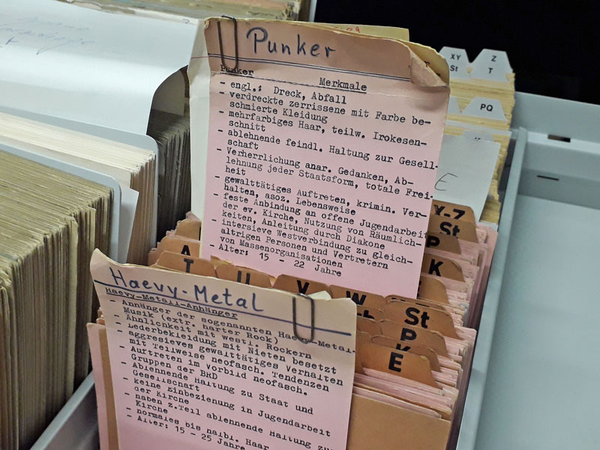 Punker
Punker Merkmale
- engl.: Dreck, Abfall
- verdreckte zerrissene mit Farbe be-
schmierte Kleidung
- mehrfarbiges Haar, teilw. Irokesen-
schnitt
- ablehnende feindl. Haltung zur Gesell-
schaft
- Verherrlichung anar. Gedanken, Ab-
lehnung jeder Staatsform, totale Frei-
heit
- gewalttätiges Auftreten, krimin. Ver-
halten, asoz. Lebensweise
- feste Anbindung an offene Jugendarbeit
der ev. Kirche, Nutzung von Räumlich-
keiten, Anleitung durch Diakone
- intersieve Westverbindung zu gleich-
altrigen Personen und Vertretern
von Massenorganisationen
- Alter: 15 - 22 Jahre
Haevy-Metal
Haevy-Metall-Anhänger
- Anhänger der sogenannten Haevy-Metal-
Musik (extr. harter Rock)
- Ähnlichkeit mit westl. Rockern
- Lederbekleidung mit Nieten besetzt
- aggresieves gewalttätiges Verhalten
mit Teilweise neofasch. Tendenzen
- Auftreten im Vorbild neofasch.
Gruppen der BRD
- Ablehnende Haltung zu Staat und
Gesellschaft
- keine Einbeziehung in Jugendarbeit
der Kirche
- haben z.Teil ablehnende Haltung zur
Kirche
- normales bis halbl. Haar
- Alter: 15 - 25 Jahre
XY
St
Z
T
PQ
E
Y-Z
St
P
K
A
T
U
V
W
St
P
K
E